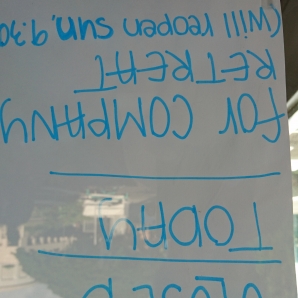 CLOSED
TODAY
FOR COMPANY
RETREAT
(Will reopen sun. 9:30